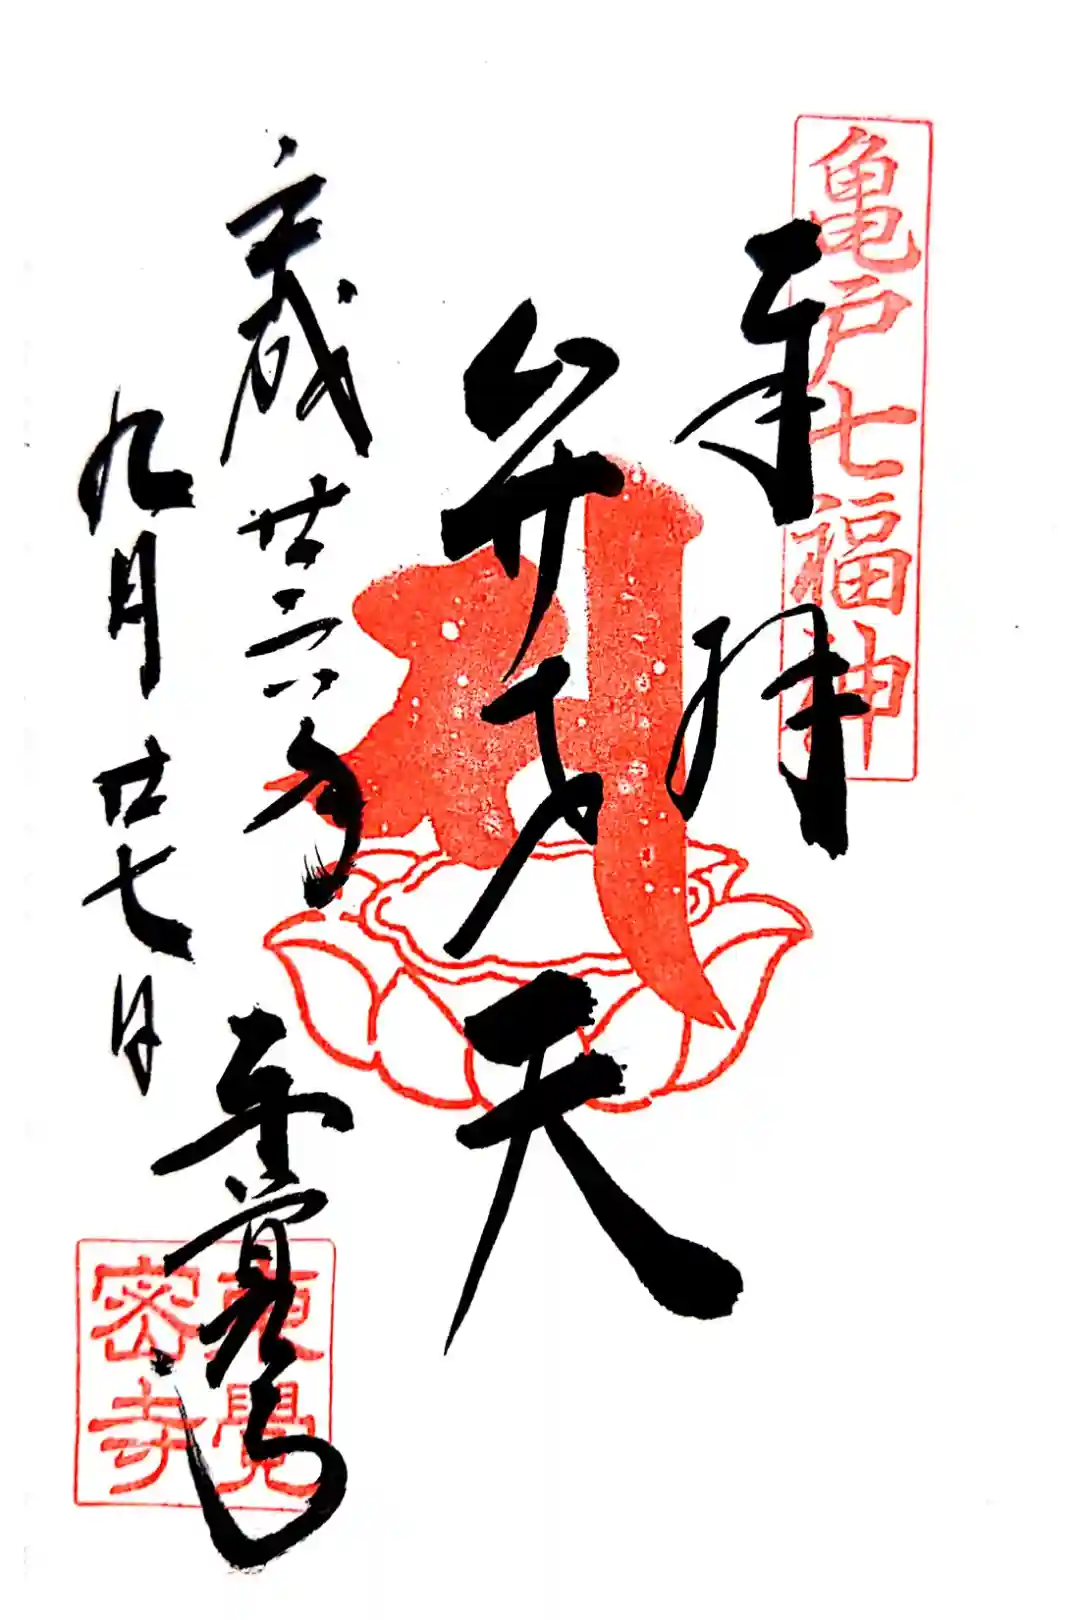 亀戸七福神
奉拝
弁才天
平成廿六年
九月廿七日
東覚寺
東覺
密寺